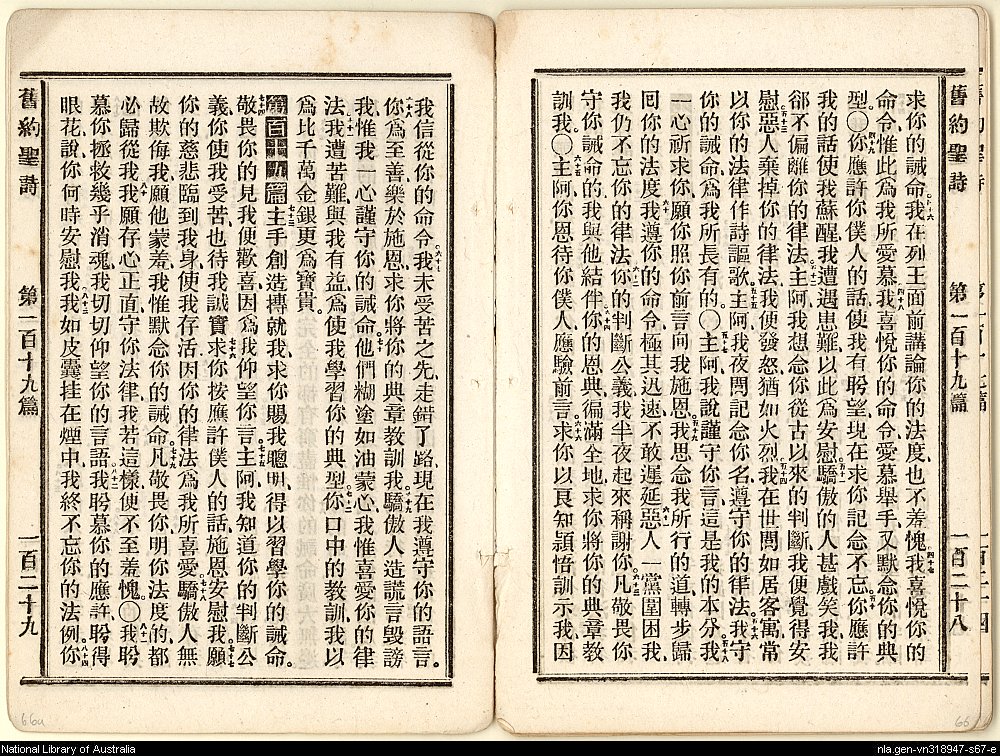 舊約聖詩 第一百十九篇 一百二十八
求你的誡命我在列王面前講論你的法度也不羞愧我喜悅你的
命令惟此爲我所愛慕我喜悅你的命令愛慕舉手又默念你的典
型〇你應許你僕人的話使我有盼望現在求你記念不忘你應許
我的話使我蘇醒我遭遇患難以此爲安慰驕傲的人甚戲笑我我
卻不偏離你的律法主阿我想念你從古以來的判斷我便覺得安
慰惡人棄掉你的律法我便發怒猶如火烈我在世間如居客寓常
以你的法律作詩謳歌主阿我夜間記念你名遵守你的律法我守
你的誡命爲我所長有的〇主阿我說謹守你言這是我的本分我
一心祈求你願你照你前言向我施恩我思念我所行的道轉步歸
囘你的法度我遵你的命令極其迅速不敢遲延惡人一黨圍困我
我仍不忘你的律法你的判斷公義我半夜起來稱謝你凡敬畏你
守你誡命的我與他結伴你的恩典徧滿全地求你將你的典章教
訓我〇主阿你恩待你僕人應驗前言求你以良知穎悟訓示我因
我信從你的命令我未受苦之先走錯了路現在我遵守你的語言
你爲至善樂於施恩求你將你的典章教訓我驕傲人造謊言毀謗
我惟我一心謹守你的誡命他們糊塗如油蒙心我惟喜愛你的律
法我遭苦難與我有益爲使我學習你的典型你口中的教訓我以
爲比千萬金銀更爲寶貴
第百十九篇主手創造摶就我求你賜我聰明得以習學你的誡命
敬畏你的見我便歡喜因爲我仰望你言主阿我知道你的判斷公
義你使我受苦也待我誠實求你按應許僕人的話施恩安慰我願
你的慈悲臨到我身使我存活因你的律法爲我所喜愛驕傲人無
故欺侮我願他蒙羞我惟默念你的誡命凡敬畏你明你法度的都
必歸從我我願存心正直守你法律我若這樣便不至羞愧〇我盼
慕你拯救幾乎消魂我切切仰望你的言語我盼慕你的應許盼得
眼花說你何時安慰我我如皮囊挂在煙中我終不忘你的法例你
舊約聖詩 第一百十九篇 一百二十九
66a
66
National Library of Australia
nla.gen-vn318947-s67-e